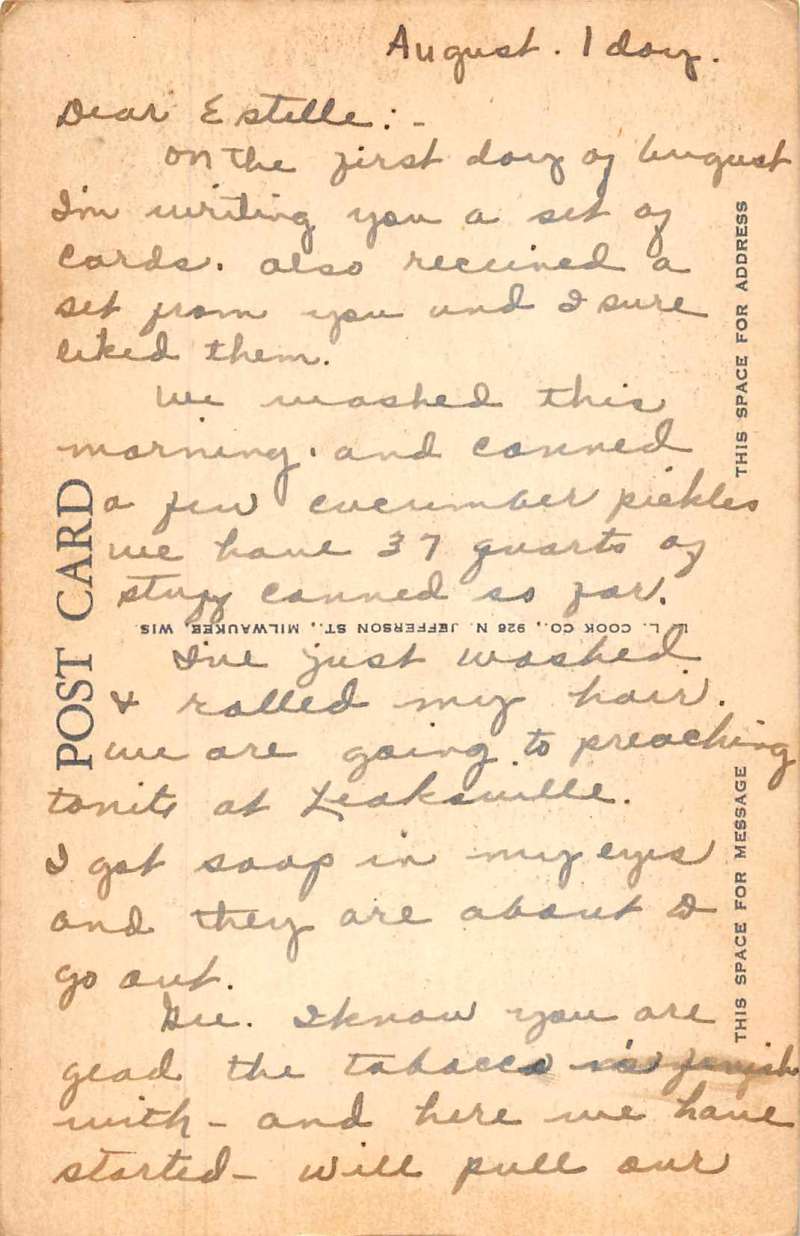 August. 1 day.
Dear Estelle:-
on the first day of August
I'm writing you a set of
cards. also received a
set from you and I sure
liked them.
We washed this
morning. and canned
a few cucumber pickles
we have 37 quarts of
stuff canned so far.
I've just washed
& rolled my hair.
we are going to preaching
tonite at Leaksville.
I got soap in my eyes
and they are about to
go out.
Gee. I know you are
glad the tobacco is finish
with - and here we have
started - will pull our
POST CARD
L. L. COOK CO., 926 N. JEFFERSON ST., MILWAUKEE, WIS.
THIS SPACE FOR ADDRESS
THIS SPACE FOR MESSAGE